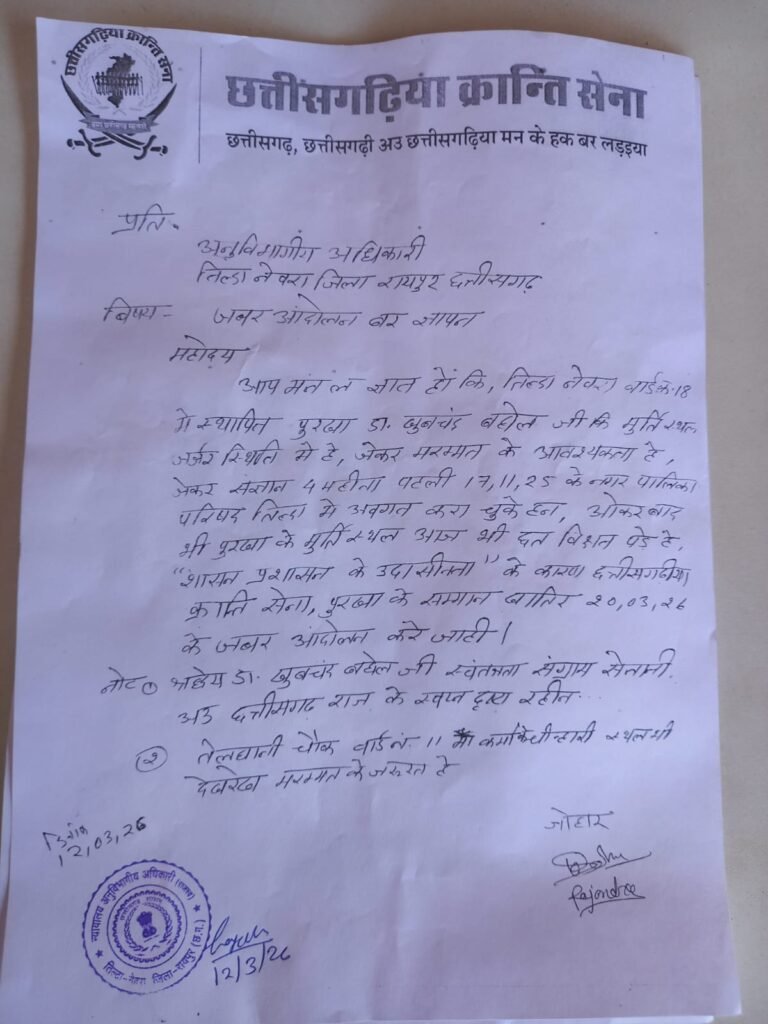 छत्तीसगढ़िया क्रान्ति सेना
छत्तीसगढ़िया क्रान्ति सेना
छत्तीसगढ़, छत्तीसगढ़ी अउ छत्तीसगढ़िया मन के हक बर लड़इया
प्रति-
अनुविभागीय अधिकारी
तिल्दा नेवरा जिला रायपुर छत्तीसगढ़
विषय- जबर आंदोलन बर ज्ञापन
महोदय
आप मन ल ज्ञात हों कि, तिल्दा नेवरा वार्ड क्र.18
मे स्थापित पुरखा डा. खुबचंद बघेल जी कि मुर्ति स्थल
जर्जर स्थिति मे हे, जेकर मरम्मत के आवश्यकता हे,
जेकर संज्ञान 4 महीना पहली 17,11,25 के नगर पालिका
परिषद तिल्दा मे अवगत करा चुके हन, ओकर बाद
भी पुरखा के मुर्ति स्थल आज भी छत विछत पड़े हे,
"शासन प्रशासन के उदासीनता" के कारण छत्तीसगढ़ीया
क्रांति सेना, पुरखा के सम्मान खातिर 20,03,26
के जबर आंदोलन करे जाही।
नोट ① श्रद्धेय डा. खुबचंद बघेल जी स्वंतत्रता संग्राम सेनानी
अउ छत्तीसगढ़ राज के स्वप्न दृष्टा रहीन..
② तेलघानी चौक वार्ड नं. 11 कर्मा के चिन्हारी स्थल भी
देखरेख मरम्मत के जरुरत हे
दिनांक
12,03,26
जोहार
Rajendra
न्यायालय अनुविभागीय अधिकारी (राजस्व)
तिल्दा-नेवरा जिला-रायपुर (छ.ग.)
12/3/26